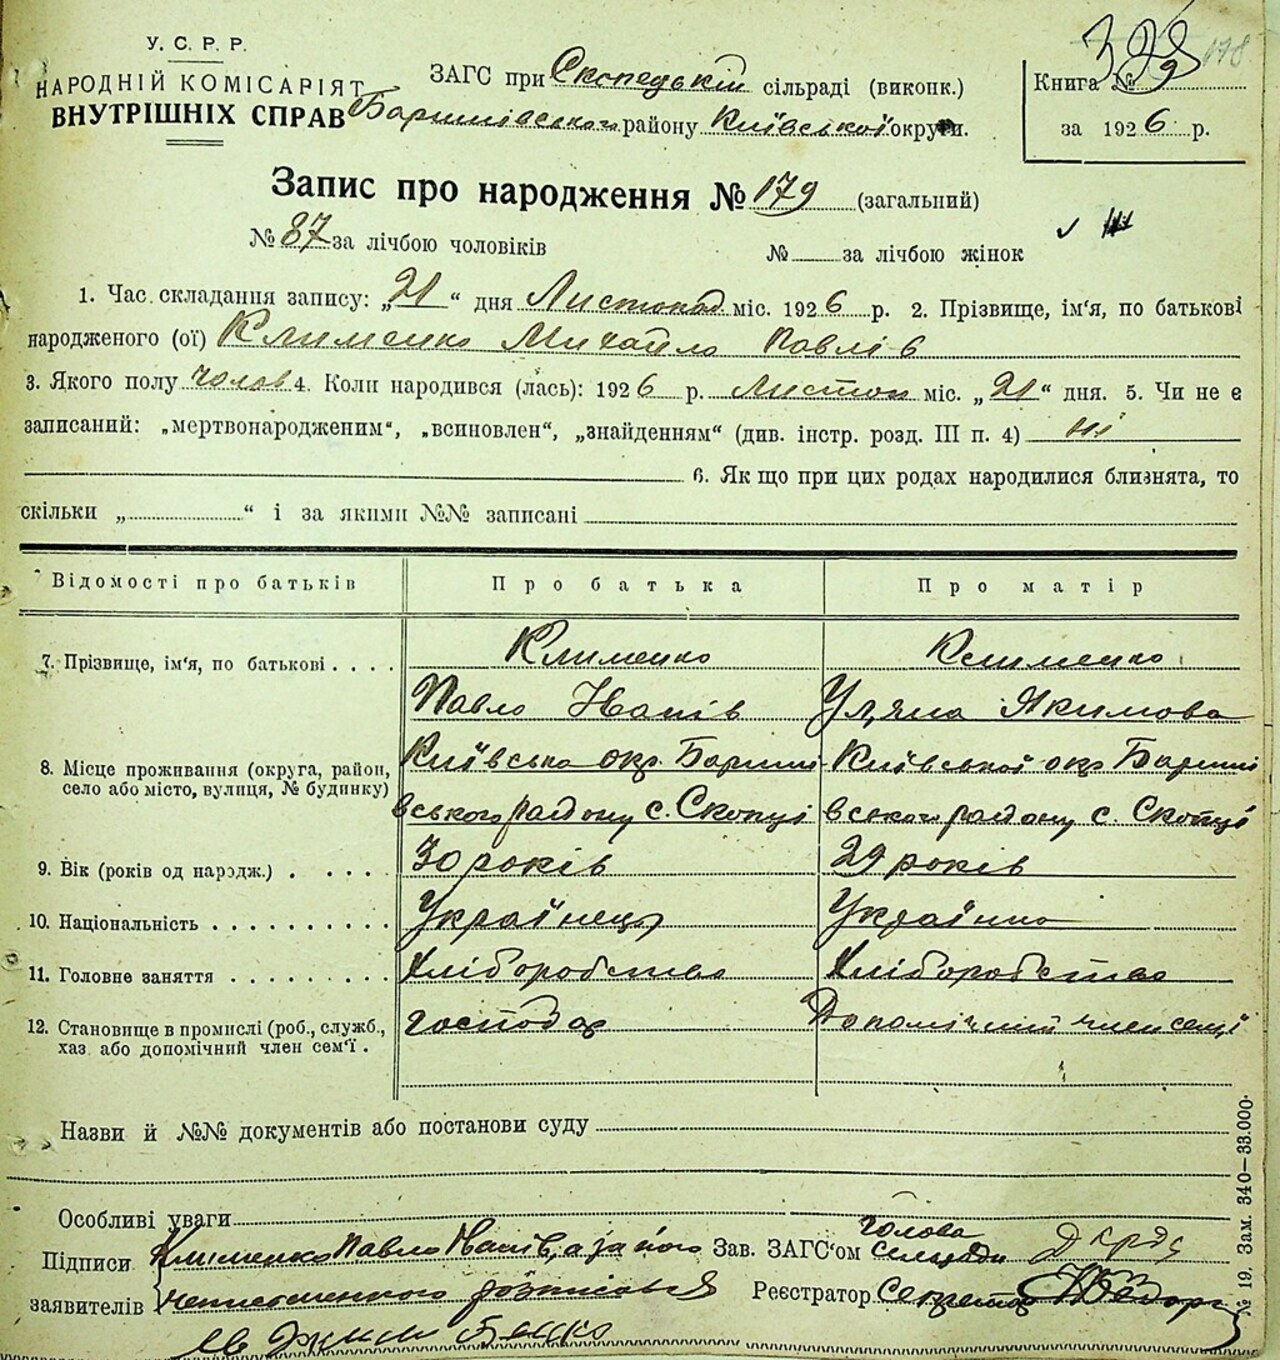 У. С. Р. Р.
НАРОДНІЙ КОМІСАРІЯТ
ВНУТРІШНІХ СПРАВ
ЗАГС при Скопецькій сільраді (виконк.)
Баришівського району Київської округи.
Книга №
за 1926 р.
Запис про народження № 179 (загальний)
№ 87 за лічбою чоловіків № за лічбою жінок
1. Час складання запису: „21“ дня Листопад міс. 1926 р. 2. Прізвище, ім'я, по батькові
народженого (ої) Клименко Михайло Павлів
3. Якого полу чолов 4. Коли народився (лась): 1926 р. Листоп міс. „21“ дня. 5. Чи не є
записаний: „мертвонародженим“, „всиновлен“, „знайденням“ (див. інстр. розд. III п. 4) ні
6. Як що при цих родах народилися близнята, то
скільки „ “ і за якими №№ записані
Відомості про батьків Про батька Про матір
7. Прізвище, ім'я, по батькові . . . . Клименко Клименко
Павло Іванів Уляна Якимова
8. Місце проживання (округа, район, Київська окр. Бариші Київської окр Бариші
село або місто, вулиця, № будинку) вського району с. Скопці вського району с. Скопці
9. Вік (років од народж.) . . . . . 30 років 29 років
10. Національність . . . . . . . . . . Українець Українка
11. Головне заняття . . . . . . . . . Хліборобство Хліборобство
12. Становище в промислі (роб., служб., господар Допомічний член семї
хаз. або допомічний член сем'ї .
Назви й №№ документів або постанови суду
Особливі уваги
Підписи Клименко Павло Іванів, а за його Зав. ЗАГС'ом Голова сельради
заявителів неписьменного розписався Реєстратор секретар
№ 19. Зам. 340—33.000.